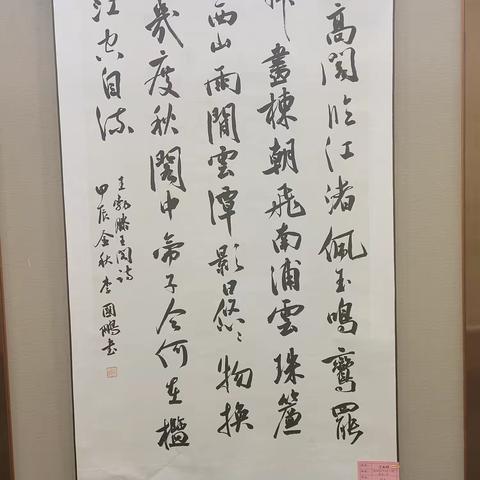 高閣臨江渚佩玉鳴鸞罷
畫棟朝飛南浦雲珠簾
西山雨閒雲潭影日悠々物換
幾度秋閣中帝子今何在檻
江空自流
王勃滕王閣詩
甲辰金秋李國鵬書